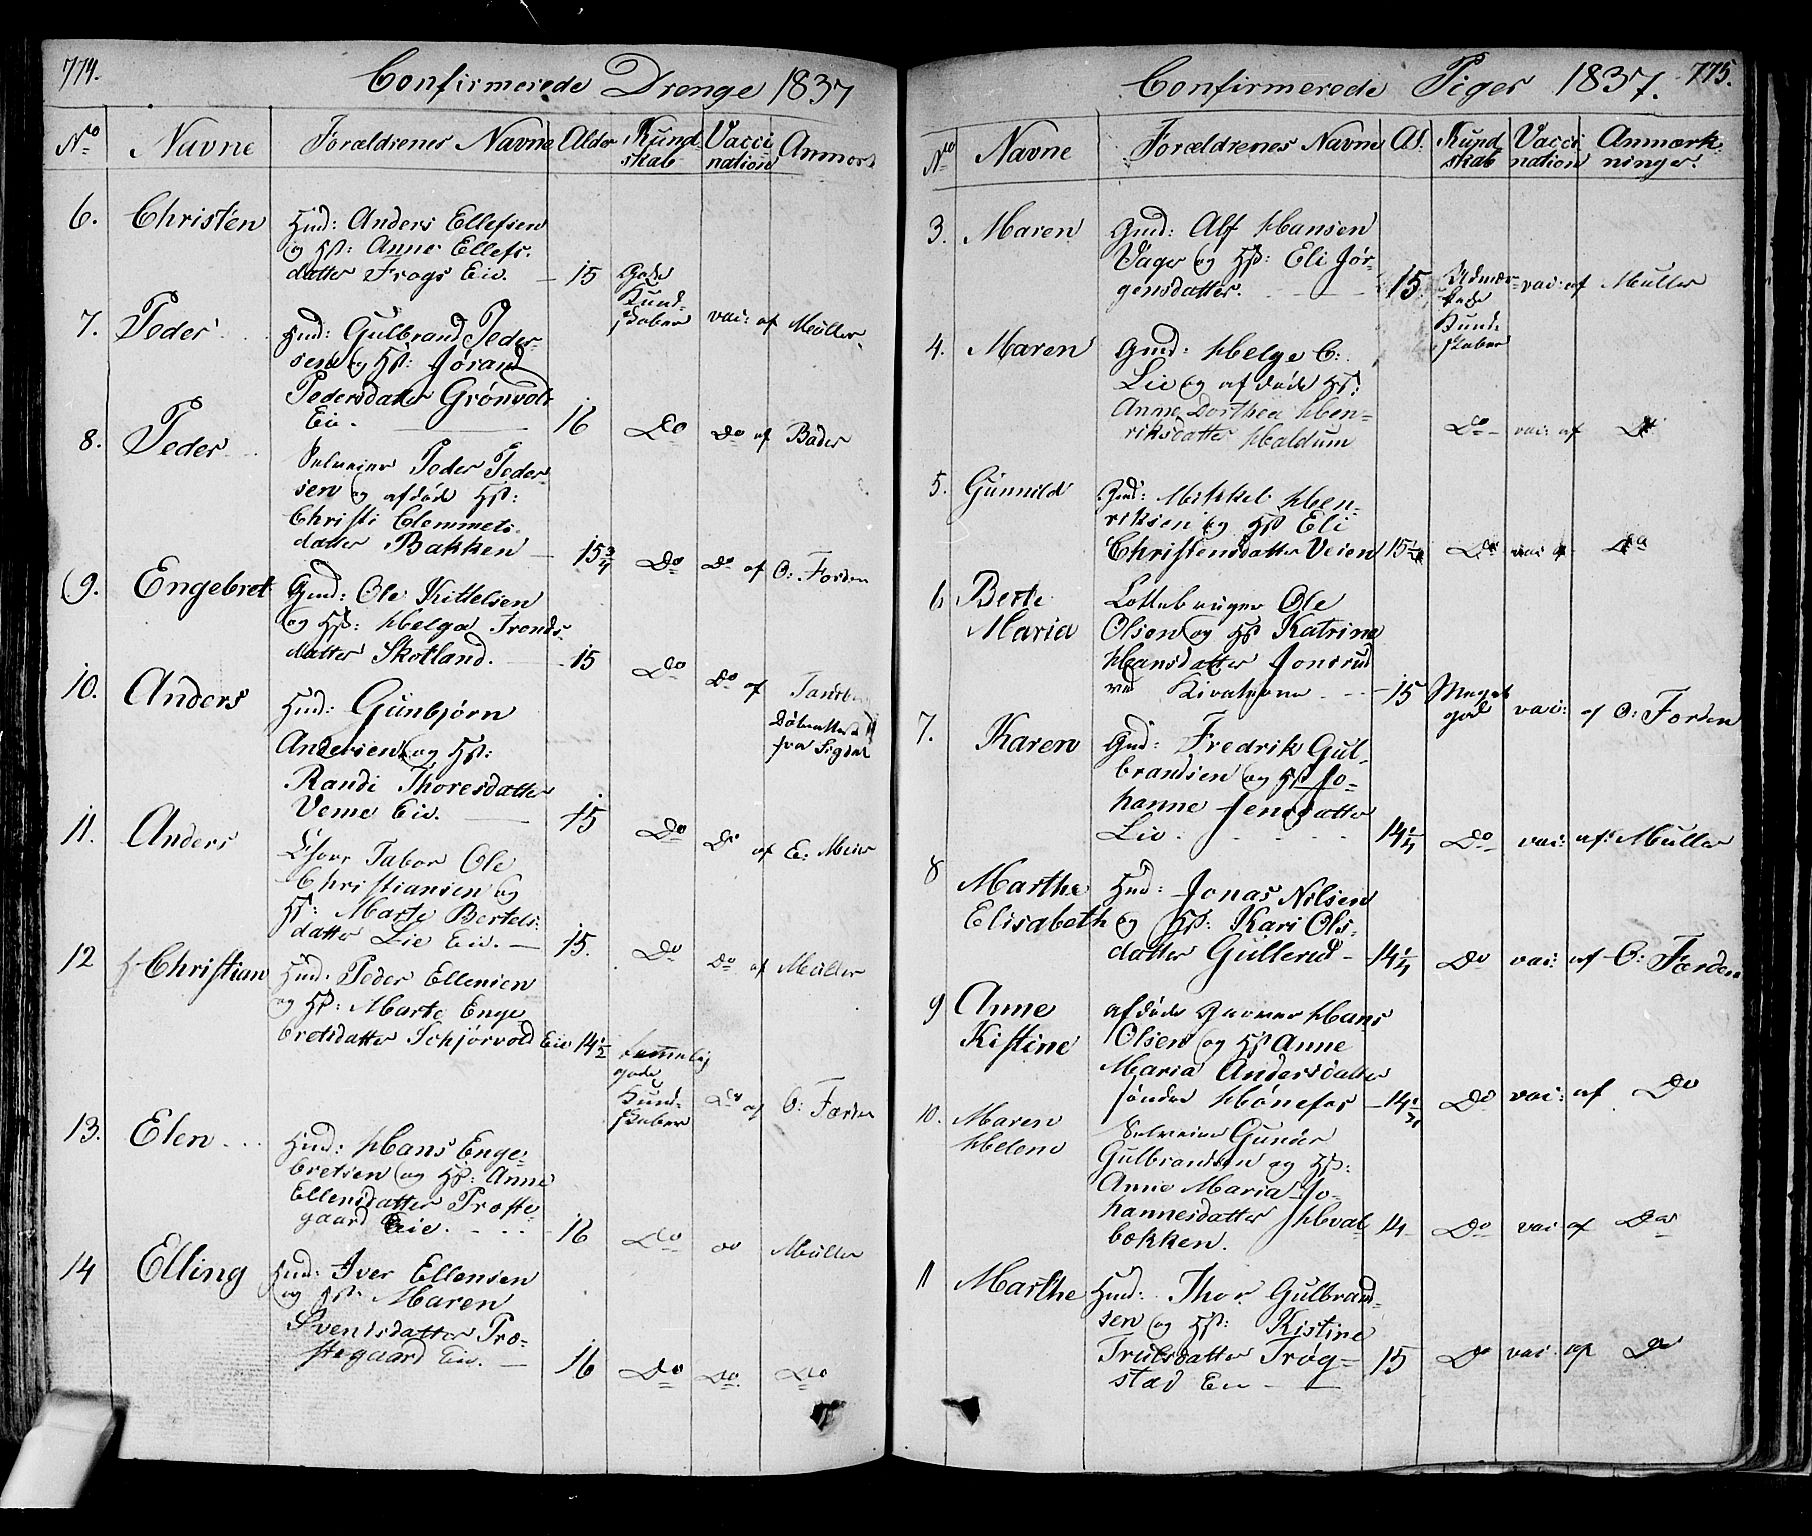 774.
Confirmerede Drenge 1837
No Navne Forældrenes Navne Alder Kund- Vacci
skab nation Anmerk
6. Christen Hmd: Anders Ellefsen
og Hst: Anne Ellefs.
datter Frogs Eie. — 15 Gode
Kund-
skaber vac: af Müller
7. Peder Hmd: Gulbrand Peder-
sen og Hst: Jørand
Pedersdatter Grønvold
Eie. 16 Do Do af Bader
8. Peder Selveier Peder Peder-
sen og afdøde Hst:
Christi Clemmets-
datter Bakken — 15 3/4 Do Do af O: Forden
9. Engebret Gmd: Ole Kittelsen
og Hst: Helga Tronds-
datter Skotland. 15 Do Do af
10. Anders Hmd: Gunbjørn
Andersen og Hst:
Randi Thoresdatter
Veme Eie. — 15 Do Do af E: Meier
Døbeattest
fra Sigdal
11. Anders Tabor Ole
Christiansen og
Hst: Marte Bertels-
datter Lie Eie. — 15. Do Do af Müller
12 Christian Hmd: Peder Ellensen
og Hst: Marte Enge
bretsdatter Schjørvold Eie 14 1/2 temmelig
gode
Kund-
skaber Do af O: Forden
13. Elen Hmd: Hans Enge-
bretsen og Hst: Anne
Ellensdatter Proste-
gaard Eie. 16 Do Do Müller
14 Elling Hmd: Iver Ellensen
og Hst: Maren
Svendsdatter Pro-
stegaard Eie. — 16 Do Do Do
775.
Confirmerede Piger 1837.
No Navne Forældrenes Navne Al. Kund Vacci Anmærk-
skab nation ninger.
3. Maren Gmd: Alf Hansen
Vager og Hst: Eli Jør-
gensdatter. 15 Udmær-
kede
Kund-
skaber vac: af Müller
4. Maren Gmd: Helge C:
Lie og afdøde Hst:
Anne Dorthea Hen-
riksdatter Haldum Do vac: af Do
5. Gunnild Gmd: Mikkel Hen-
riksen og Hst Eli
Christensdatter Veien 15 1/2 Do vac af Do
6 Berte
Maria Ole
Olsen og Hst Katrine
Hansdatter Jonsrud
ved 15 Meget
god vac: af O: Forden
7. Karen Gmd: Fredrik Gul-
brandsen og Hst Jo-
hanne Jensdatter
Lie. 14 1/4 Do vac: af: Müller
8 Marthe
Elisabeth Hmd: Jonas Nilsen
og Hst: Kari Ols-
datter Gullerud — 14 1/4 Do vac: af O: Forden
9 Anne
Kistine afdøde Garver Hans
Olsen og Hst Anne
Maria Andersdatter
søndre Hønefos — 14 1/2 Do vac: af Do
10. Maren
Helene Selveier Gunder
Gulbrandsen og Hst:
Anne Maria Jo-
hannesdatter Hval-
bækken. 14 Do vac af Do
11 Marthe Hmd: Thor Gulbrand-
sen og Hst: Kistine
Trulsdatter Trøg-
stad Eie — 15 Do vac: af Do